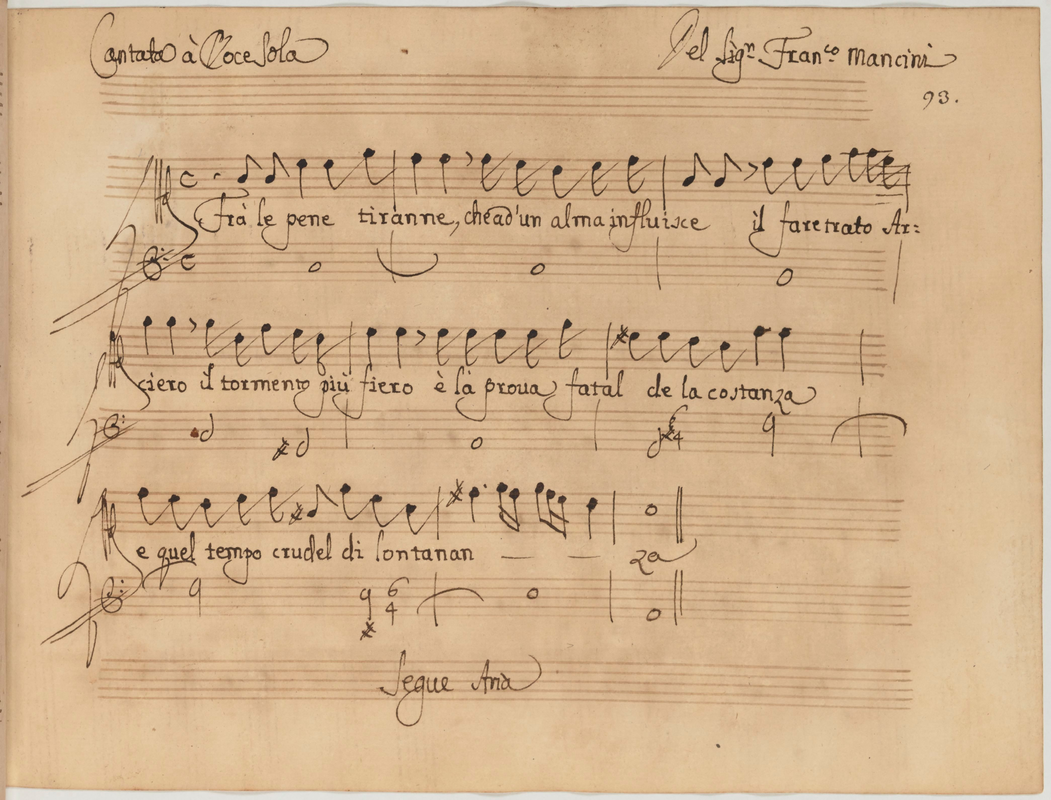 Cantata à Voce Sola
Del Sigr. Franco. Mancini
93.
Frà le pene tiranne, che ad'un alma influisce il faretrato Ar:
ciero il tormento più fiero è la proua fatal de la costanza
6
4
e quel tempo crudel di lontanan — — za
6
4
Segue Aria